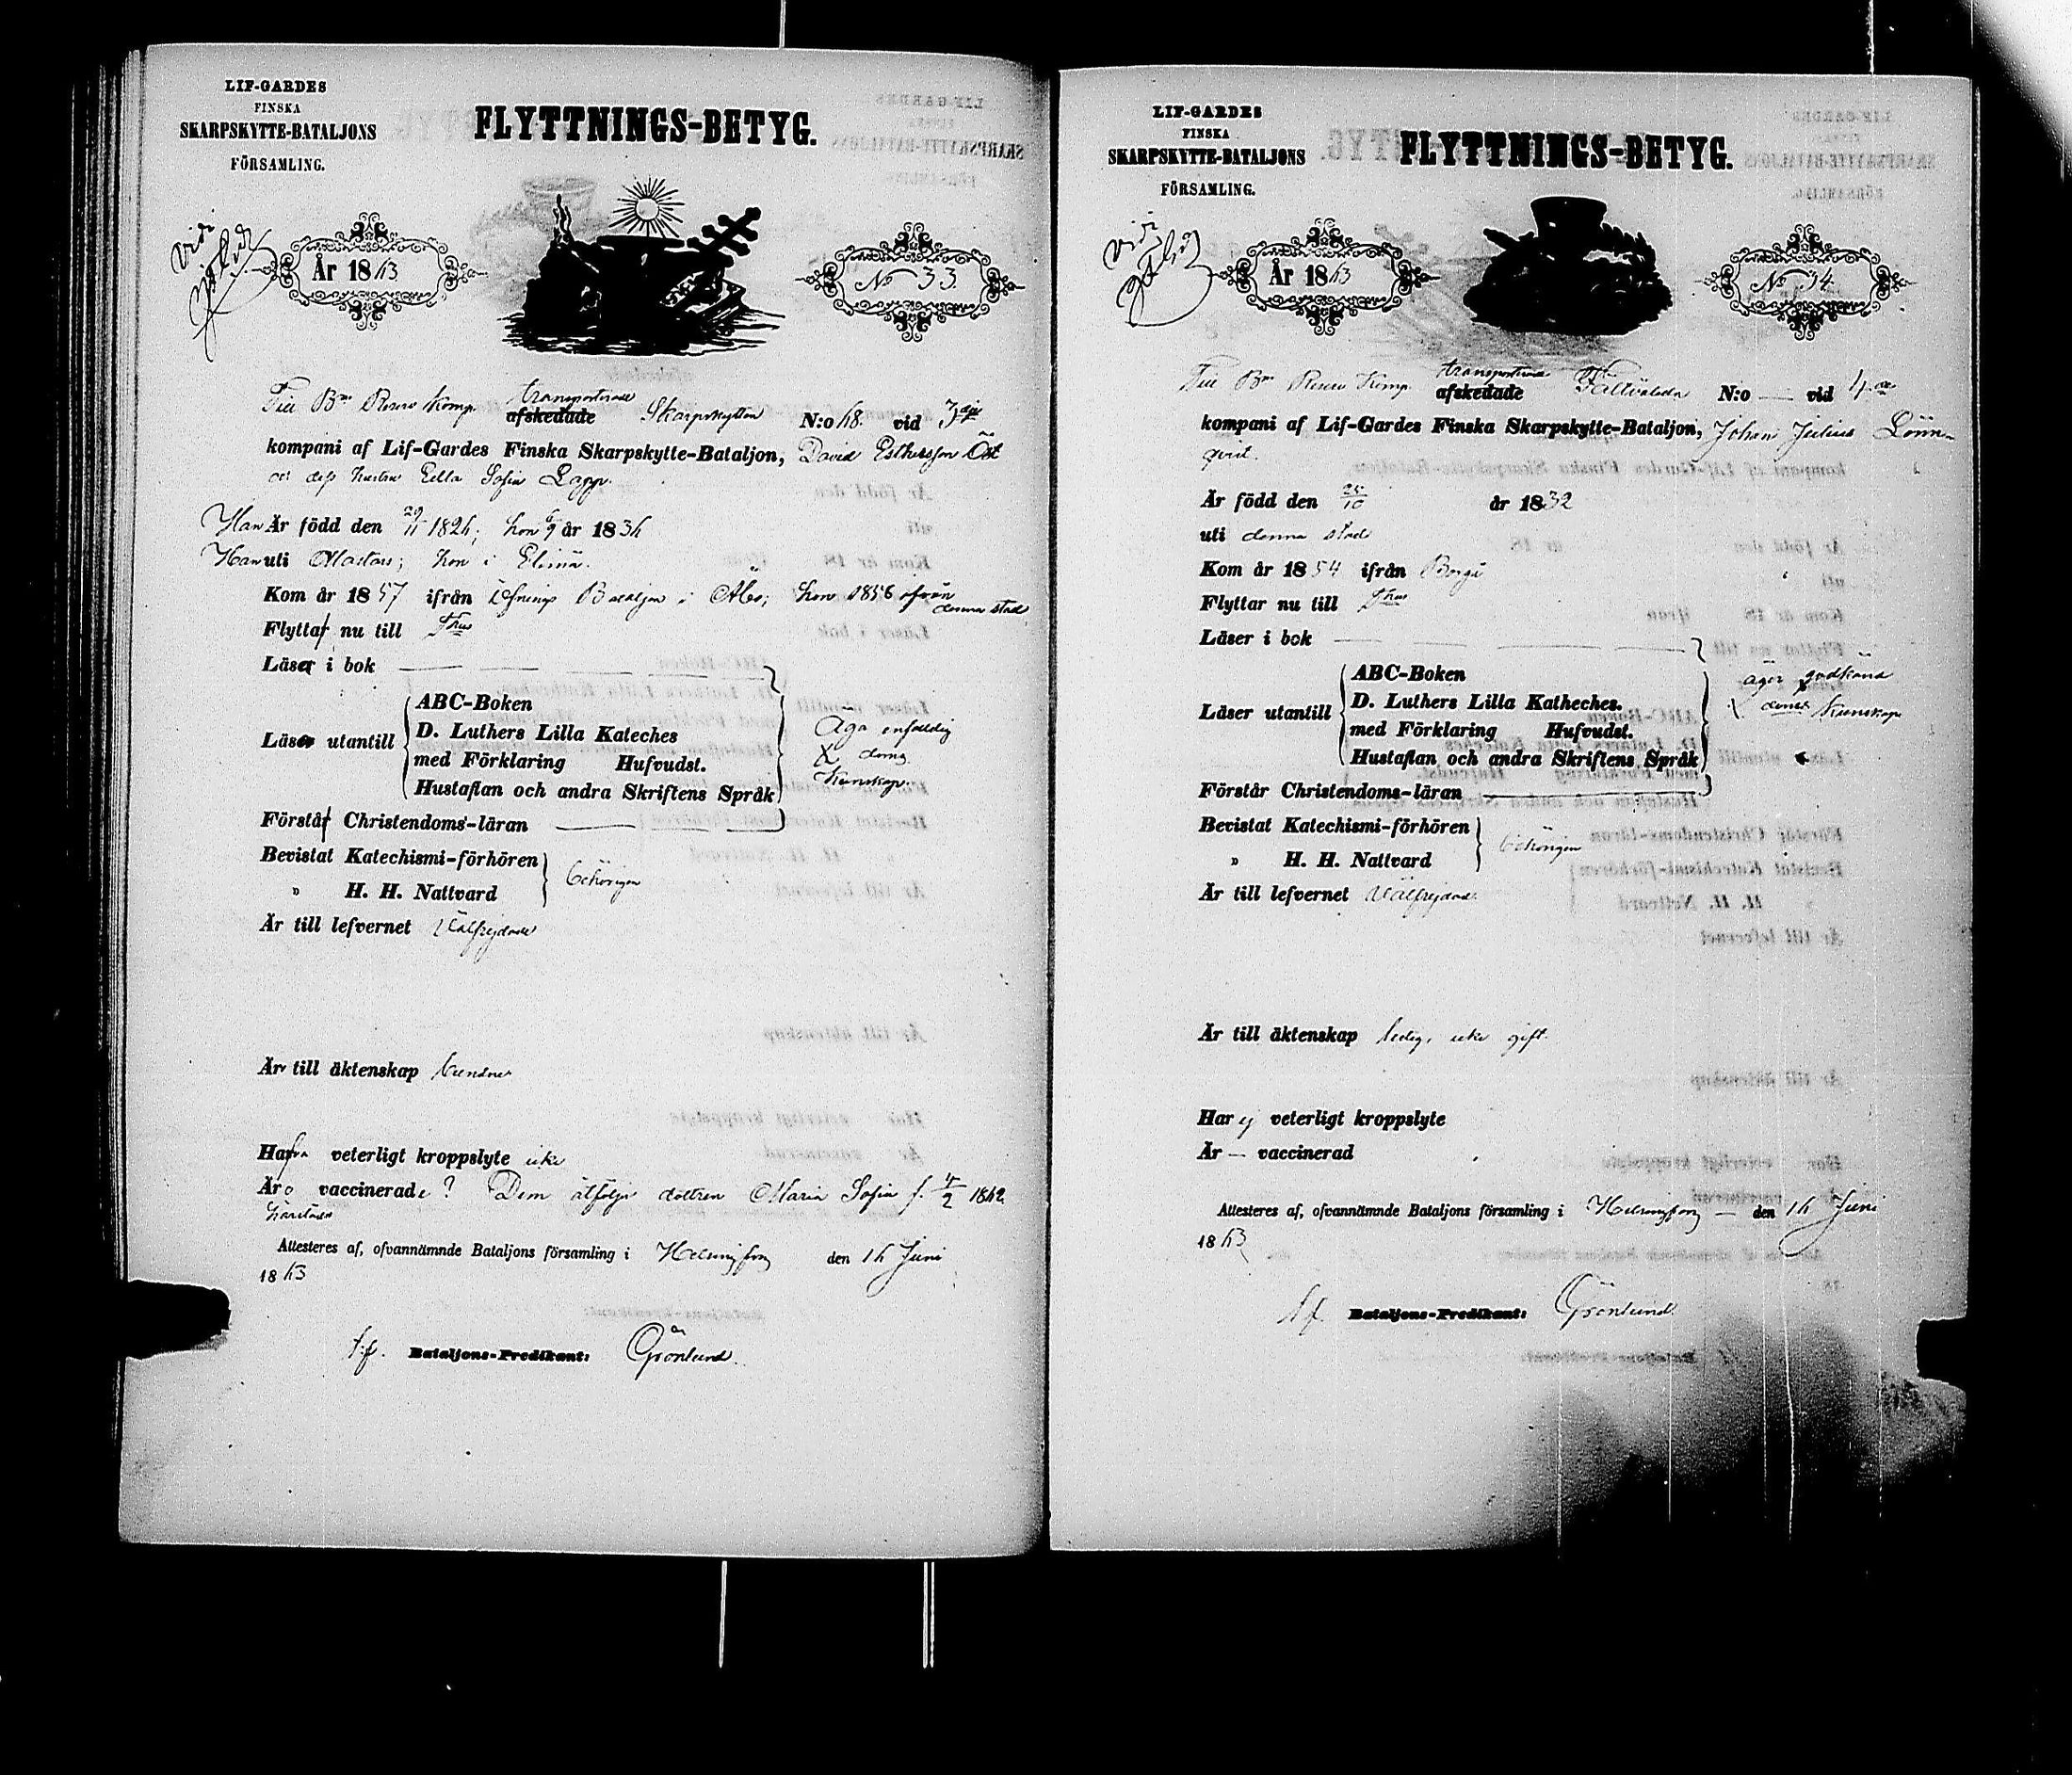 LIF-GARDES
FINSKA
SKARPSKYTTE-BATALJONS
FÖRSAMLING.
FLYTTNINGS-BETYG.
vidi
År 1863
No 33.
Till Bns Reserv Komp. transporterade
afskedade Skarpskytten N:o 68. vid 3dje
kompani af Lif-Gardes Finska Skarpskytte-Bataljon, David Esthersson Öst
och dess hustru Sofia Lapp.
Han Är född den 29/11 1826; hon 6/9 år 1836
Han uti hon i Elimä.
Kom år 1857 ifrån Bataljon i Åbo; hon 1856 ifrån
denna stad
Flytta nu till
Läsa i bok
ABC-Boken
D. Luthers Lilla Kateches
med Förklaring Hufvudst.
Hustaflan och andra Skriftens Språk
Läsa utantill
Äga enfaldig
kunskap.
Förstå Christendoms-läran
Bevistat Katechismi-förhören
" H. H. Nattvard
behörigen
Är till lefvernet Välfrejdade
Är till äktenskap bundne
Hafva veterligt kroppslyte icke
Äro vaccinerade? Dem åtföljer dottren Maria Sofia f. 1862.
Attesteres af, ofvannämnde Bataljons församling i Helsingfors den 16 Juni
1863
t.f. Bataljons-Predikant: Grönlund.
LIF-GARDES
FINSKA
SKARPSKYTTE-BATALJONS
FÖRSAMLING.
FLYTTNINGS-BETYG.
vidi
År 1863
No 34.
Till Bns Reserv Komp. transporterade
afskedade N:o — vid 4.de
kompani af Lif-Gardes Finska Skarpskytte-Bataljon, Johan Julius Lönn-
qvist.
Är född den 25/10 år 1832
uti denna stad
Kom år 1854 ifrån Borgå
Flyttar nu till
Läser i bok
ABC-Boken
D. Luthers Lilla Katheches.
med Förklaring Hufvudst.
Hustaflan och andra Skriftens Språk
Läser utantill
äger godkänd
kunskap
Förstår Christendoms-läran
Bevistat Katechismi-förhören
" H. H. Nattvard
behörigen
Är till lefvernet Välfrejdad.
Är till äktenskap ledig, icke gift.
Har ej veterligt kroppslyte
Är — vaccinerad
Attesteres af, ofvannämnde Bataljons församling i Helsingfors — den 16 Juni
1863
t.f. Bataljons-Predikant: Grönlund.